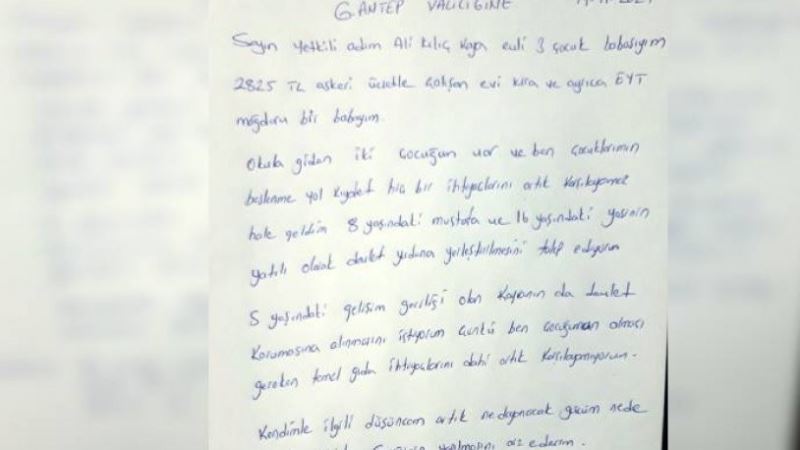 G.ANTEP VALİLİĞİNE
Sayın Yetkili adım Ali Kılıç Kaya evli 3 çocuk babasıyım
2825 TL askeri ücretle çalışan evi kira ve ayrıca EYT
mağduru bir babayım.
Okula giden iki çocuğum var ve ben çocuklarımın
beslenme yol kıyafet hiç bir ihtiyaçlarını artık karşılayamaz
hale geldim 8 yaşındaki mustafa ve 16 yaşındaki yasinin
yatılı olarak devlet yurduna yerleştirilmesini talep ediyorum
5 yaşındaki gelişim geriliği olan Kayanın da devlet
Korumasına alınmasını istiyorum Çünkü ben çocuğumun alması
gereken temel gıda ihtiyaçlarını dahi artık karşılayamıyorum.
Kendimle ilgili düşüncem artık ne dayanacak gücüm nede
yapılmasını arz ederim.